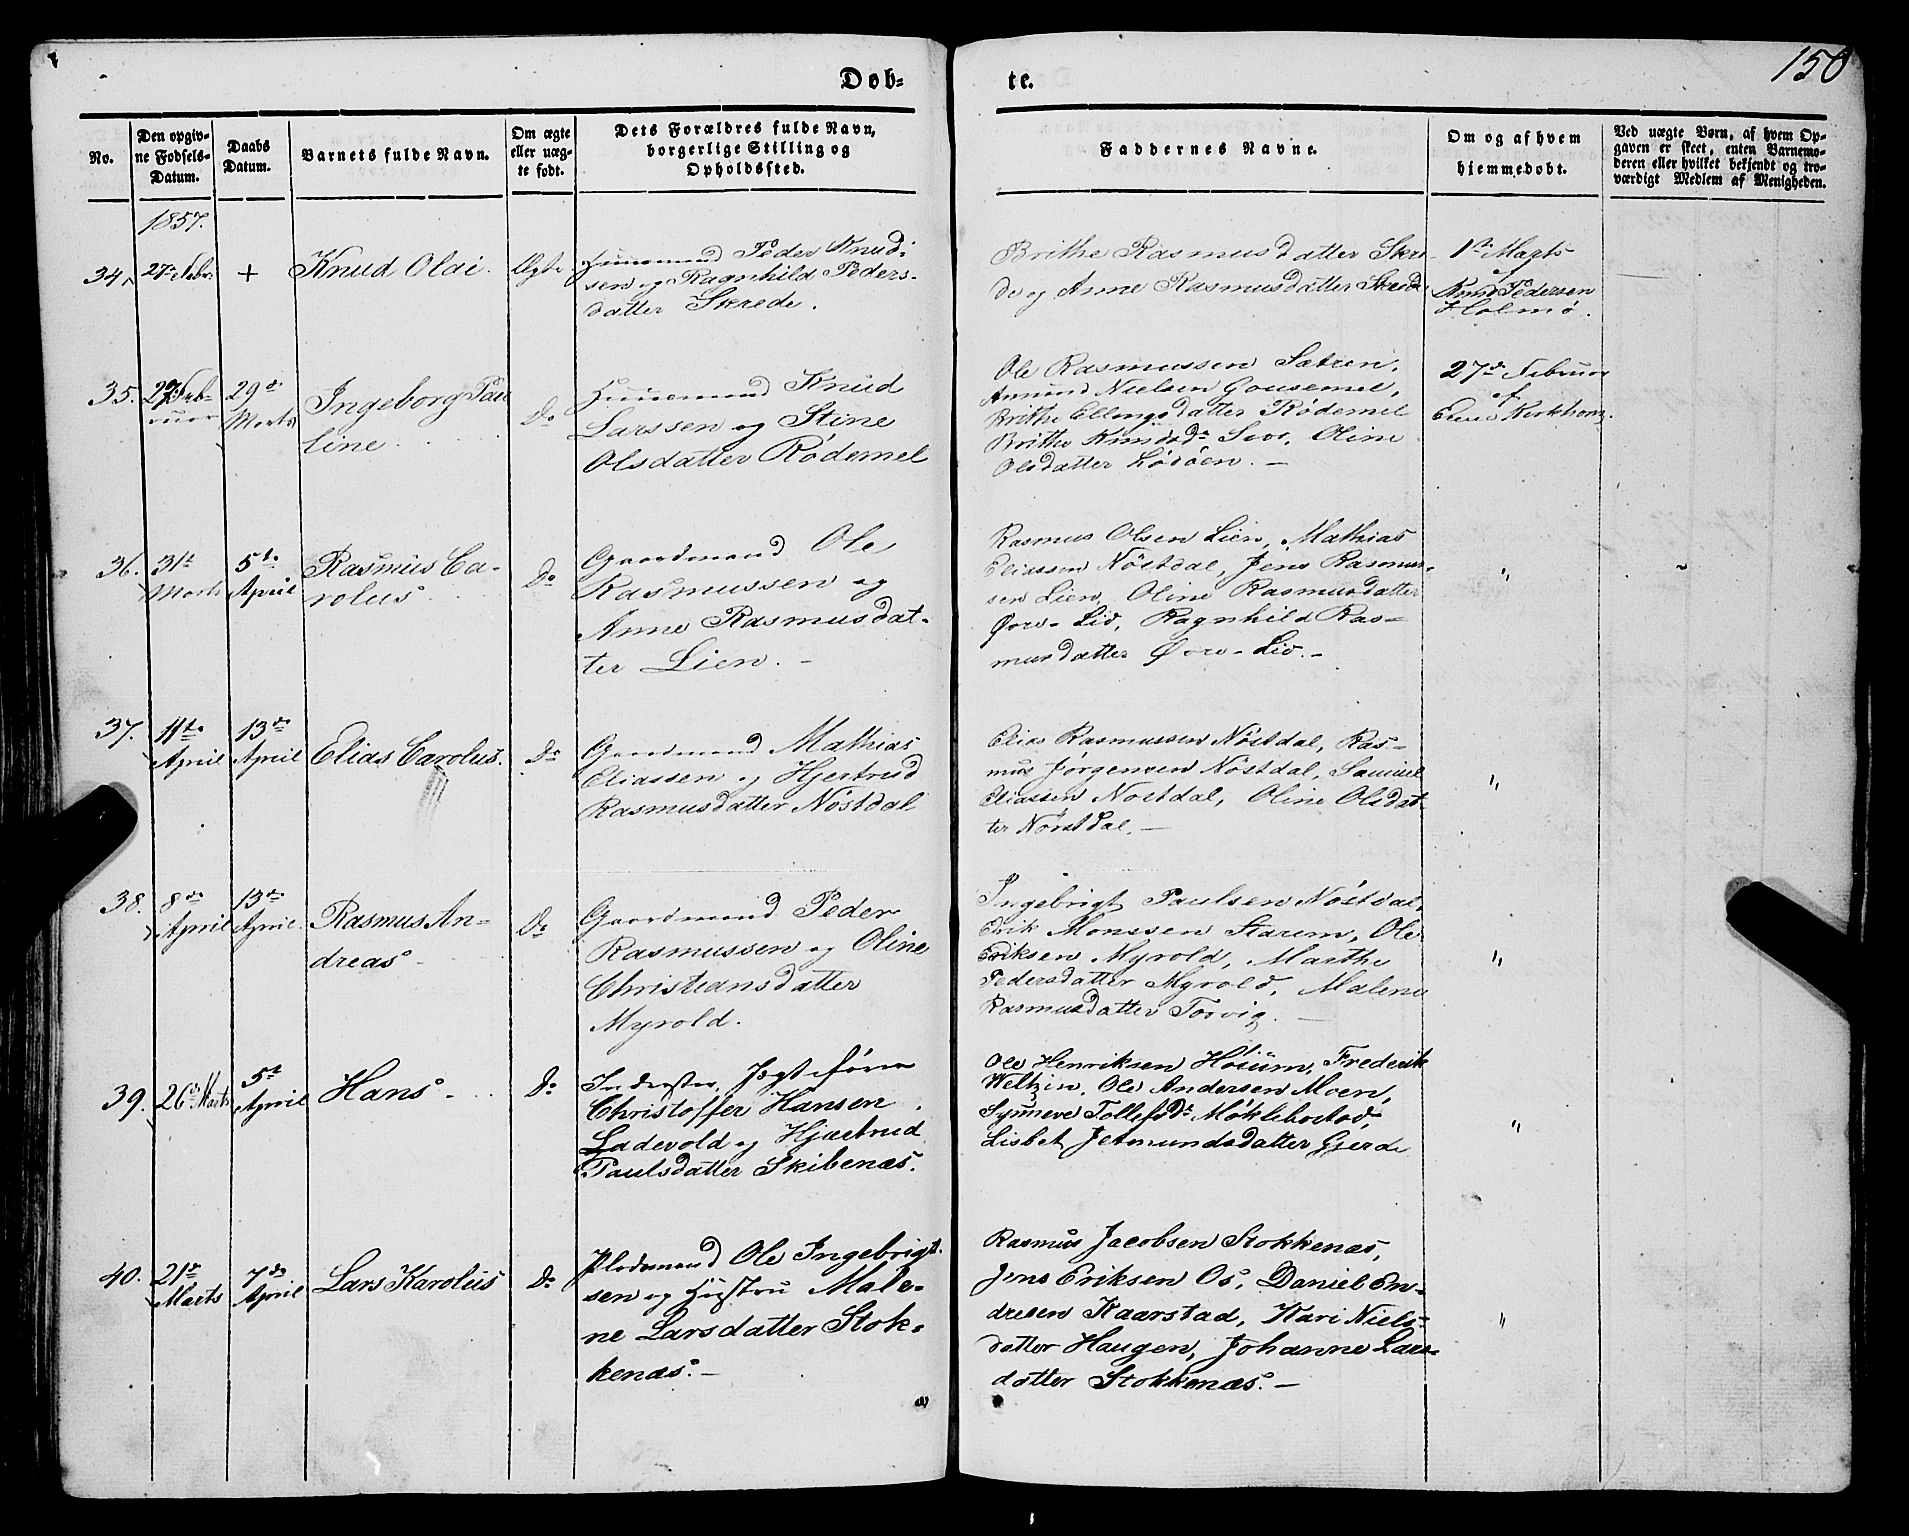 150
Döb=
te.
No.
Den opgiv=
ne Fødsels=
Datum.
Daabs
Datum.
Barnets fulde Navn.
Om ægte
eller uæg=
te født.
Dets Forældres fulde Navn,
borgerlige Stilling og
Opholdssted.
Faddernes Navne.
Om og af hvem
hjemmedøbt.
Ved uægte Børn, af hvem Op=
gaven er skeet, enten Barnemo=
deren eller hvilket bekjendt og tro=
værdigt Medlem af Menigheden.
1857.
34.
27de Febr.
+
Knud Olai.
Ægte
Huusmand Peder Knud=
sen og Ragnhild Peders=
datter Skrede.
Brithe Rasmusdatter Skre=
de og Anne Rasmusdatter Skrede
1ste Marts
af
Knud Pedersen
Holmö.
35.
Feb=
ruar
29de
Marts
Ingeborg Pau
line
Do
Huusmand Knud
Larssen og Stine
Olsdatter Rödemel
Ole Rasmussen Sætren,
Amund Nielsen Gousemel,
Brithe Ellingsdatter Rödemel
Brithe Knudsdr Sour, Oline
Olsdatter Lödöen. —
27de Februar
af
36.
31te
Marts
5te
April
Rasmus Ca=
rolus
Do
Gaardmand Ole
Rasmussen og
Anne Rasmusdat=
ter Lien. —
Rasmus Olsen Lien, Mathias
Eliassen Nöstdal, Jens Rasmus=
sen Lien, Oline Rasmusdatter
Øvre-Lid, Ragnhild Ras=
musdatter Øvre-Lid. —
"
37.
11te
April
13de
April
Elias Carolus.
Do
Gaardmand Mathias
Eliassen og Hjertrud
Rasmusdatter Nöstdal
Elias Rasmussen Nöstdal, Ras=
mus Jörgensen Nöstdal, Samuel
Eliassen Nostdal, Oline Olsdat=
ter Nöstdal. —
"
38.
8de
April
13de
April.
Rasmus An=
dreas
Do
Gaardmand Peder
Rasmussen og Oline
Christiansdatter
Myrold.
Ingebrigt Paulsen Nöstdal,
Erik Monssen Starem, Ole
Eriksen Myrold, Marthe
Pedersdatter Myrold, Malene
Rasmusdatter Torvig. —
"
39.
26de Marts
5te
April
Hans.
Do
Inderster, Jægtefører
Christoffer Hansen
Ladevold og Hjertrud
Paulsdatter Skibenæs.
Ole Henriksen Höium, Frederik
Weltzin, Ole Andersen Moen,
Synneve Tollefsdr Möklebostad,
Lisbet Jetmundsdatter Gjerde
"
40.
21de
Marts
7de
April
Lars Karolus
Do
Pladsmand Ole Ingebrigt=
sen og Hustru Male=
ne Larsdatter Stok=
kenæs. —
Rasmus Jacobsen Stokkenæs,
Jens Eriksen Os, Daniel En=
dresen Kaarstad, Kari Niels=
datter Haugen, Johanne Lars=
datter Stokkenæs. —
"